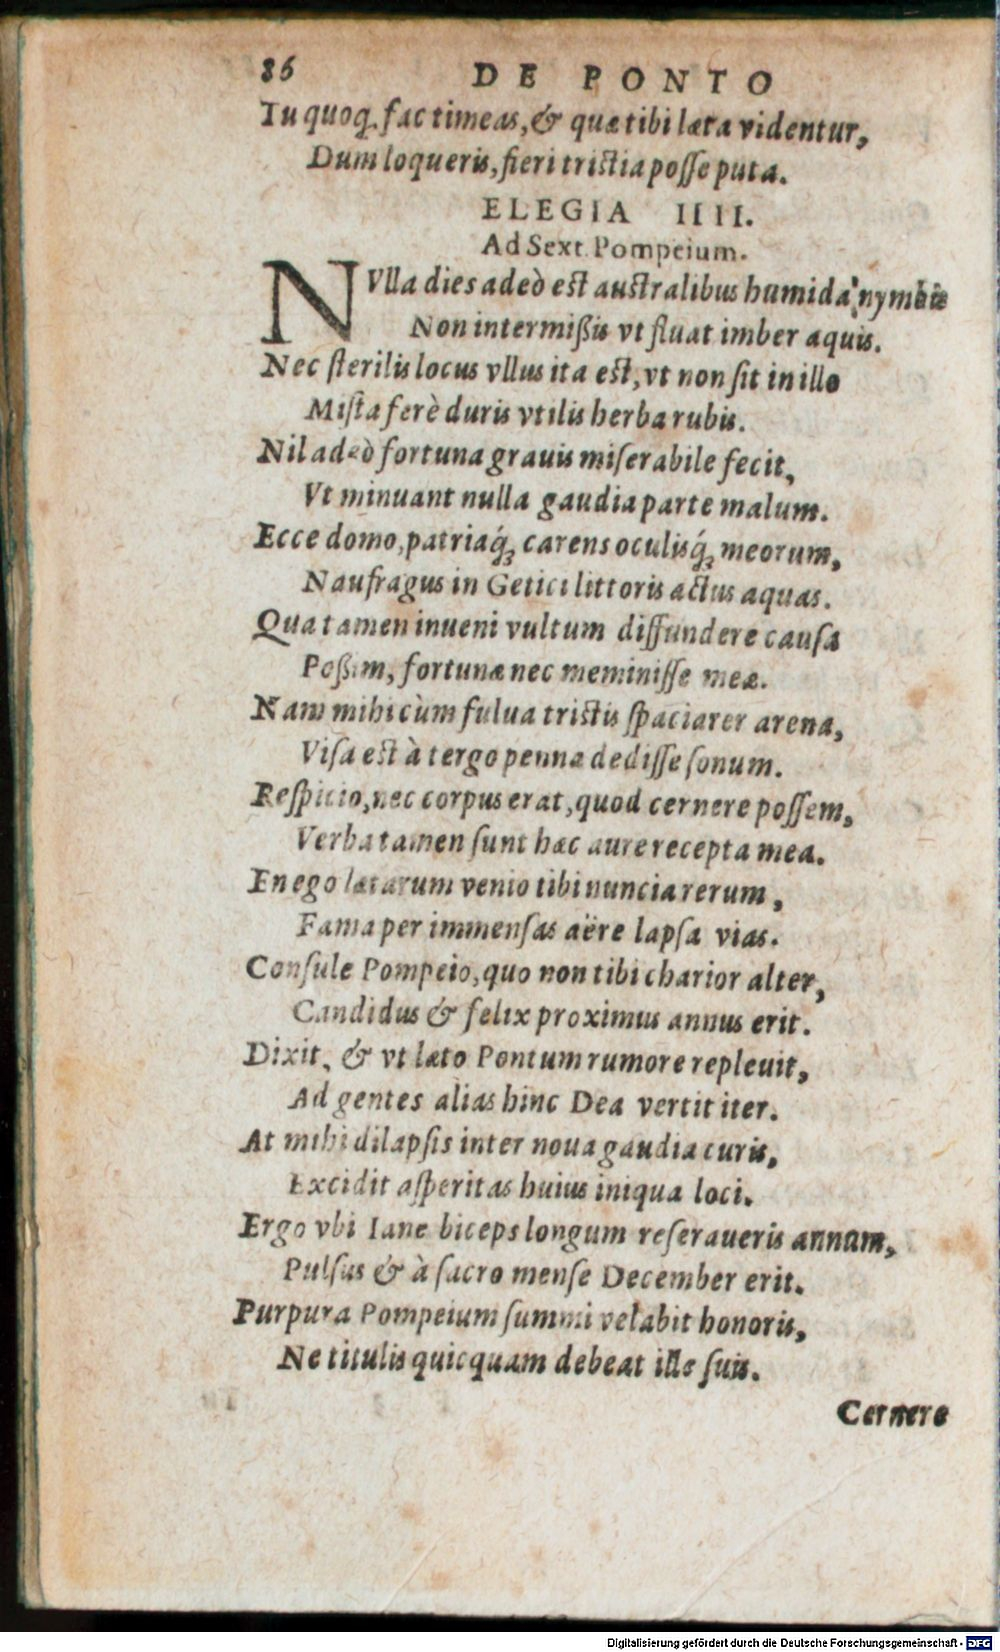 86 DE PONTO
Tu quoq. fac timeas, & quæ tibi læta videntur,
Dum loqueris, fieri tristia posse puta.
ELEGIA IIII.
Ad Sext. Pompeium.
NVlla dies adeò est australibus humida nymbis
Non intermißis vt fluat imber aquis.
Nec sterilis locus vllus ita est, vt non sit in illo
Mista ferè duris vtilis herba rubis.
Nil adeò fortuna grauis miserabile fecit,
Vt minuant nulla gaudia parte malum.
Ecce domo, patriaq́; carens oculisq́; meorum,
Naufragus in Getici littoris actus aquas.
Qua tamen inueni vultum diffundere causa
Poßim, fortunæ nec meminisse meæ.
Nam mihi cùm fulua tristis spaciarer arena,
Visa est à tergo penna dedisse sonum.
Respicio, nec corpus erat, quod cernere possem,
Verba tamen sunt hæc aure recepta mea.
En ego lætarum venio tibi nuncia rerum,
Fama per immensas aëre lapsa vias.
Consule Pompeio, quo non tibi charior alter,
Candidus & felix proximus annus erit.
Dixit, & vt læto Pontum rumore repleuit,
Ad gentes alias hinc Dea vertit iter.
At mihi dilapsis inter noua gaudia curis,
Excidit asperitas huius iniqua loci.
Ergo vbi Iane biceps longum reseraueris annum,
Pulsus & à sacro mense December erit.
Purpura Pompeium summi velabit honoris,
Ne titulis quicquam debeat ille suis.
Cernere
Digitalisierung gefördert durch die Deutsche Forschungsgemeinschaft - DFG